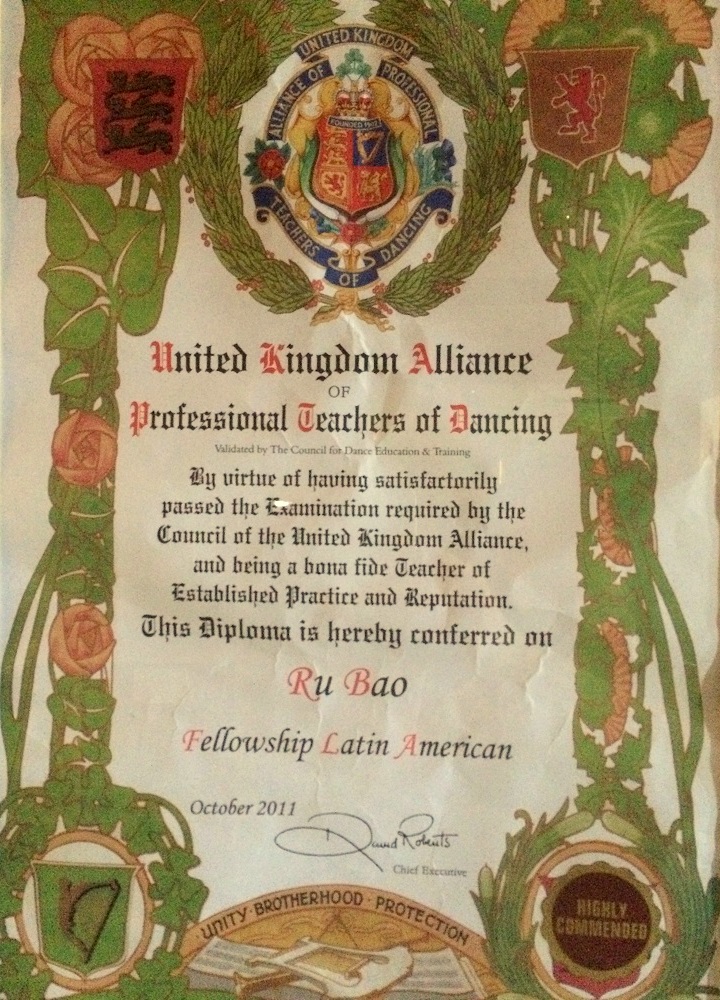 UNITED KINGDOM
ALLIANCE OF PROFESSIONAL
FOUNDED 1902
TEACHERS OF DANCING
United Kingdom Alliance
OF
Professional Teachers of Dancing
Validated by The Council for Dance Education & Training
By virtue of having satisfactorily
passed the Examination required by the
Council of the United Kingdom Alliance,
and being a bona fide Teacher of
Established Practice and Reputation.
This Diploma is hereby conferred on
Ru Bao
Fellowship Latin American
October 2011
David Roberts
Chief Executive
UNITY · BROTHERHOOD · PROTECTION
HIGHLY
COMMENDED